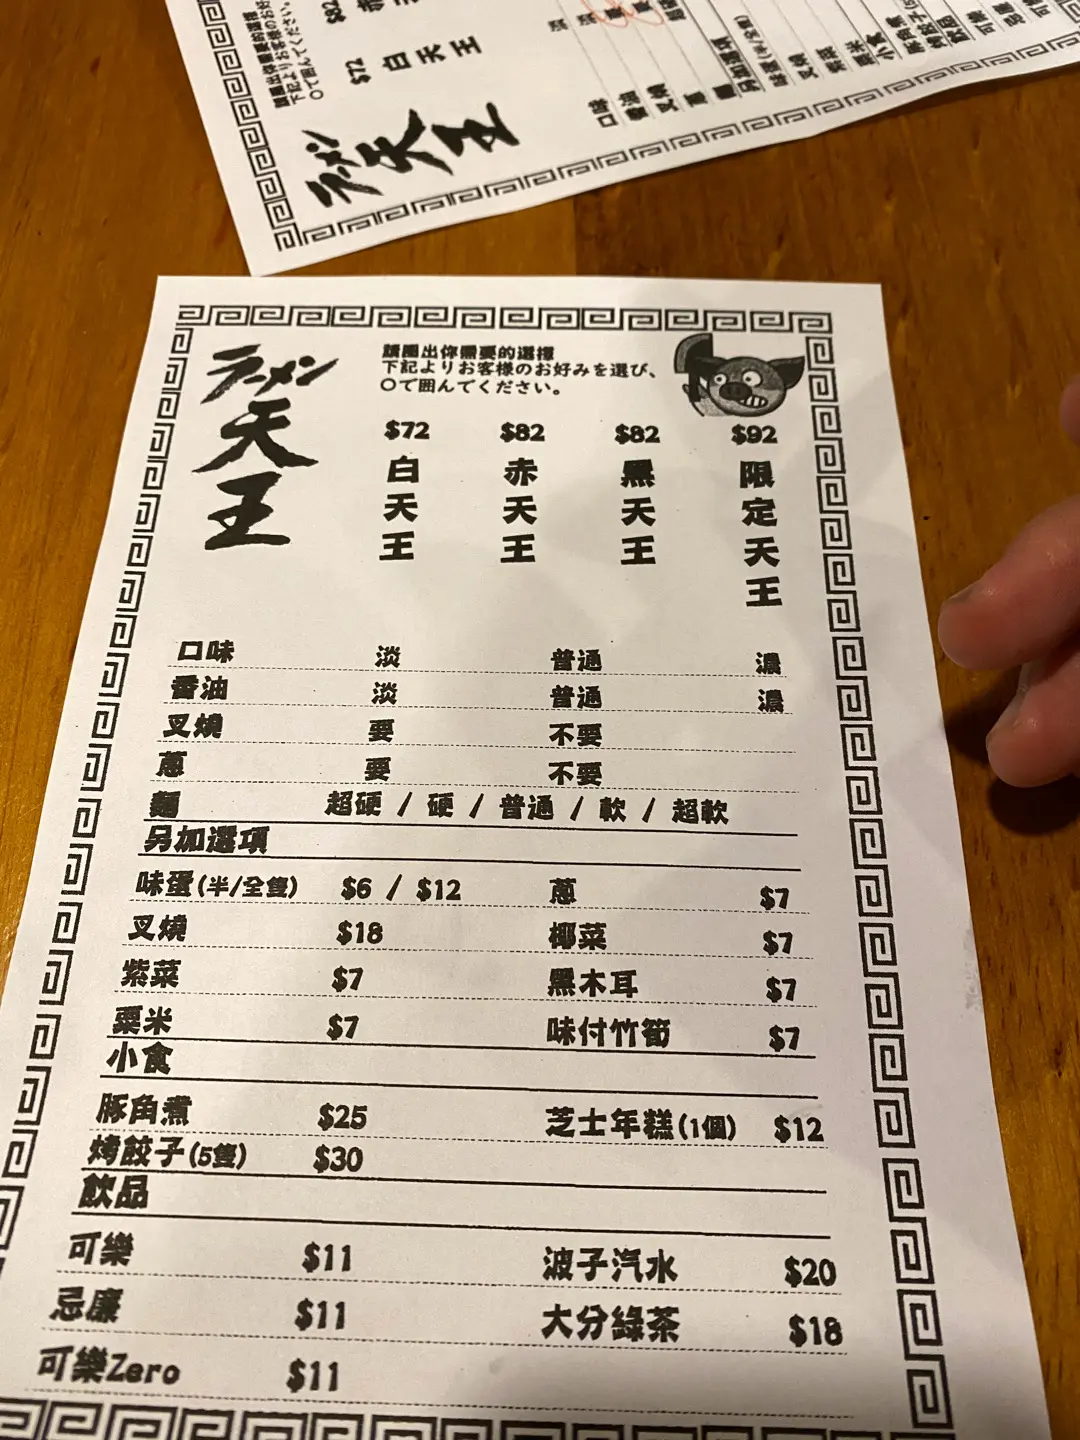 ラーメン
天王
請圈出你需要的選擇
下記よりお客様のお好みを選び、
○で囲んでください。
$72 $82 $82 $92
白天王 赤天王 黑天王 限定天王
口味 淡 普通 濃
香油 淡 普通 濃
叉燒 要 不要
蔥 要 不要
麵 超硬 / 硬 / 普通 / 軟 / 超軟
另加選項
味蛋(半/全隻) $6 / $12 蔥 $7
叉燒 $18 椰菜 $7
紫菜 $7 黑木耳 $7
粟米 $7 味付竹筍 $7
小食
豚角煮 $25 芝士年糕(1個) $12
烤餃子(5隻) $30
飲品
可樂 $11 波子汽水 $20
忌廉 $11 大分綠茶 $18
可樂Zero $11
ラーメン
天王
$72
白天王
$82
請圈出你需要的選擇
下記よりお客様のお好
○で囲んでください。
口味
香油
叉燒
蔥
麵
另加選項
味蛋(半/全隻)
叉燒
紫菜
粟米
小食
豚角煮
烤餃子(5
飲品
可樂
忌廉
可樂